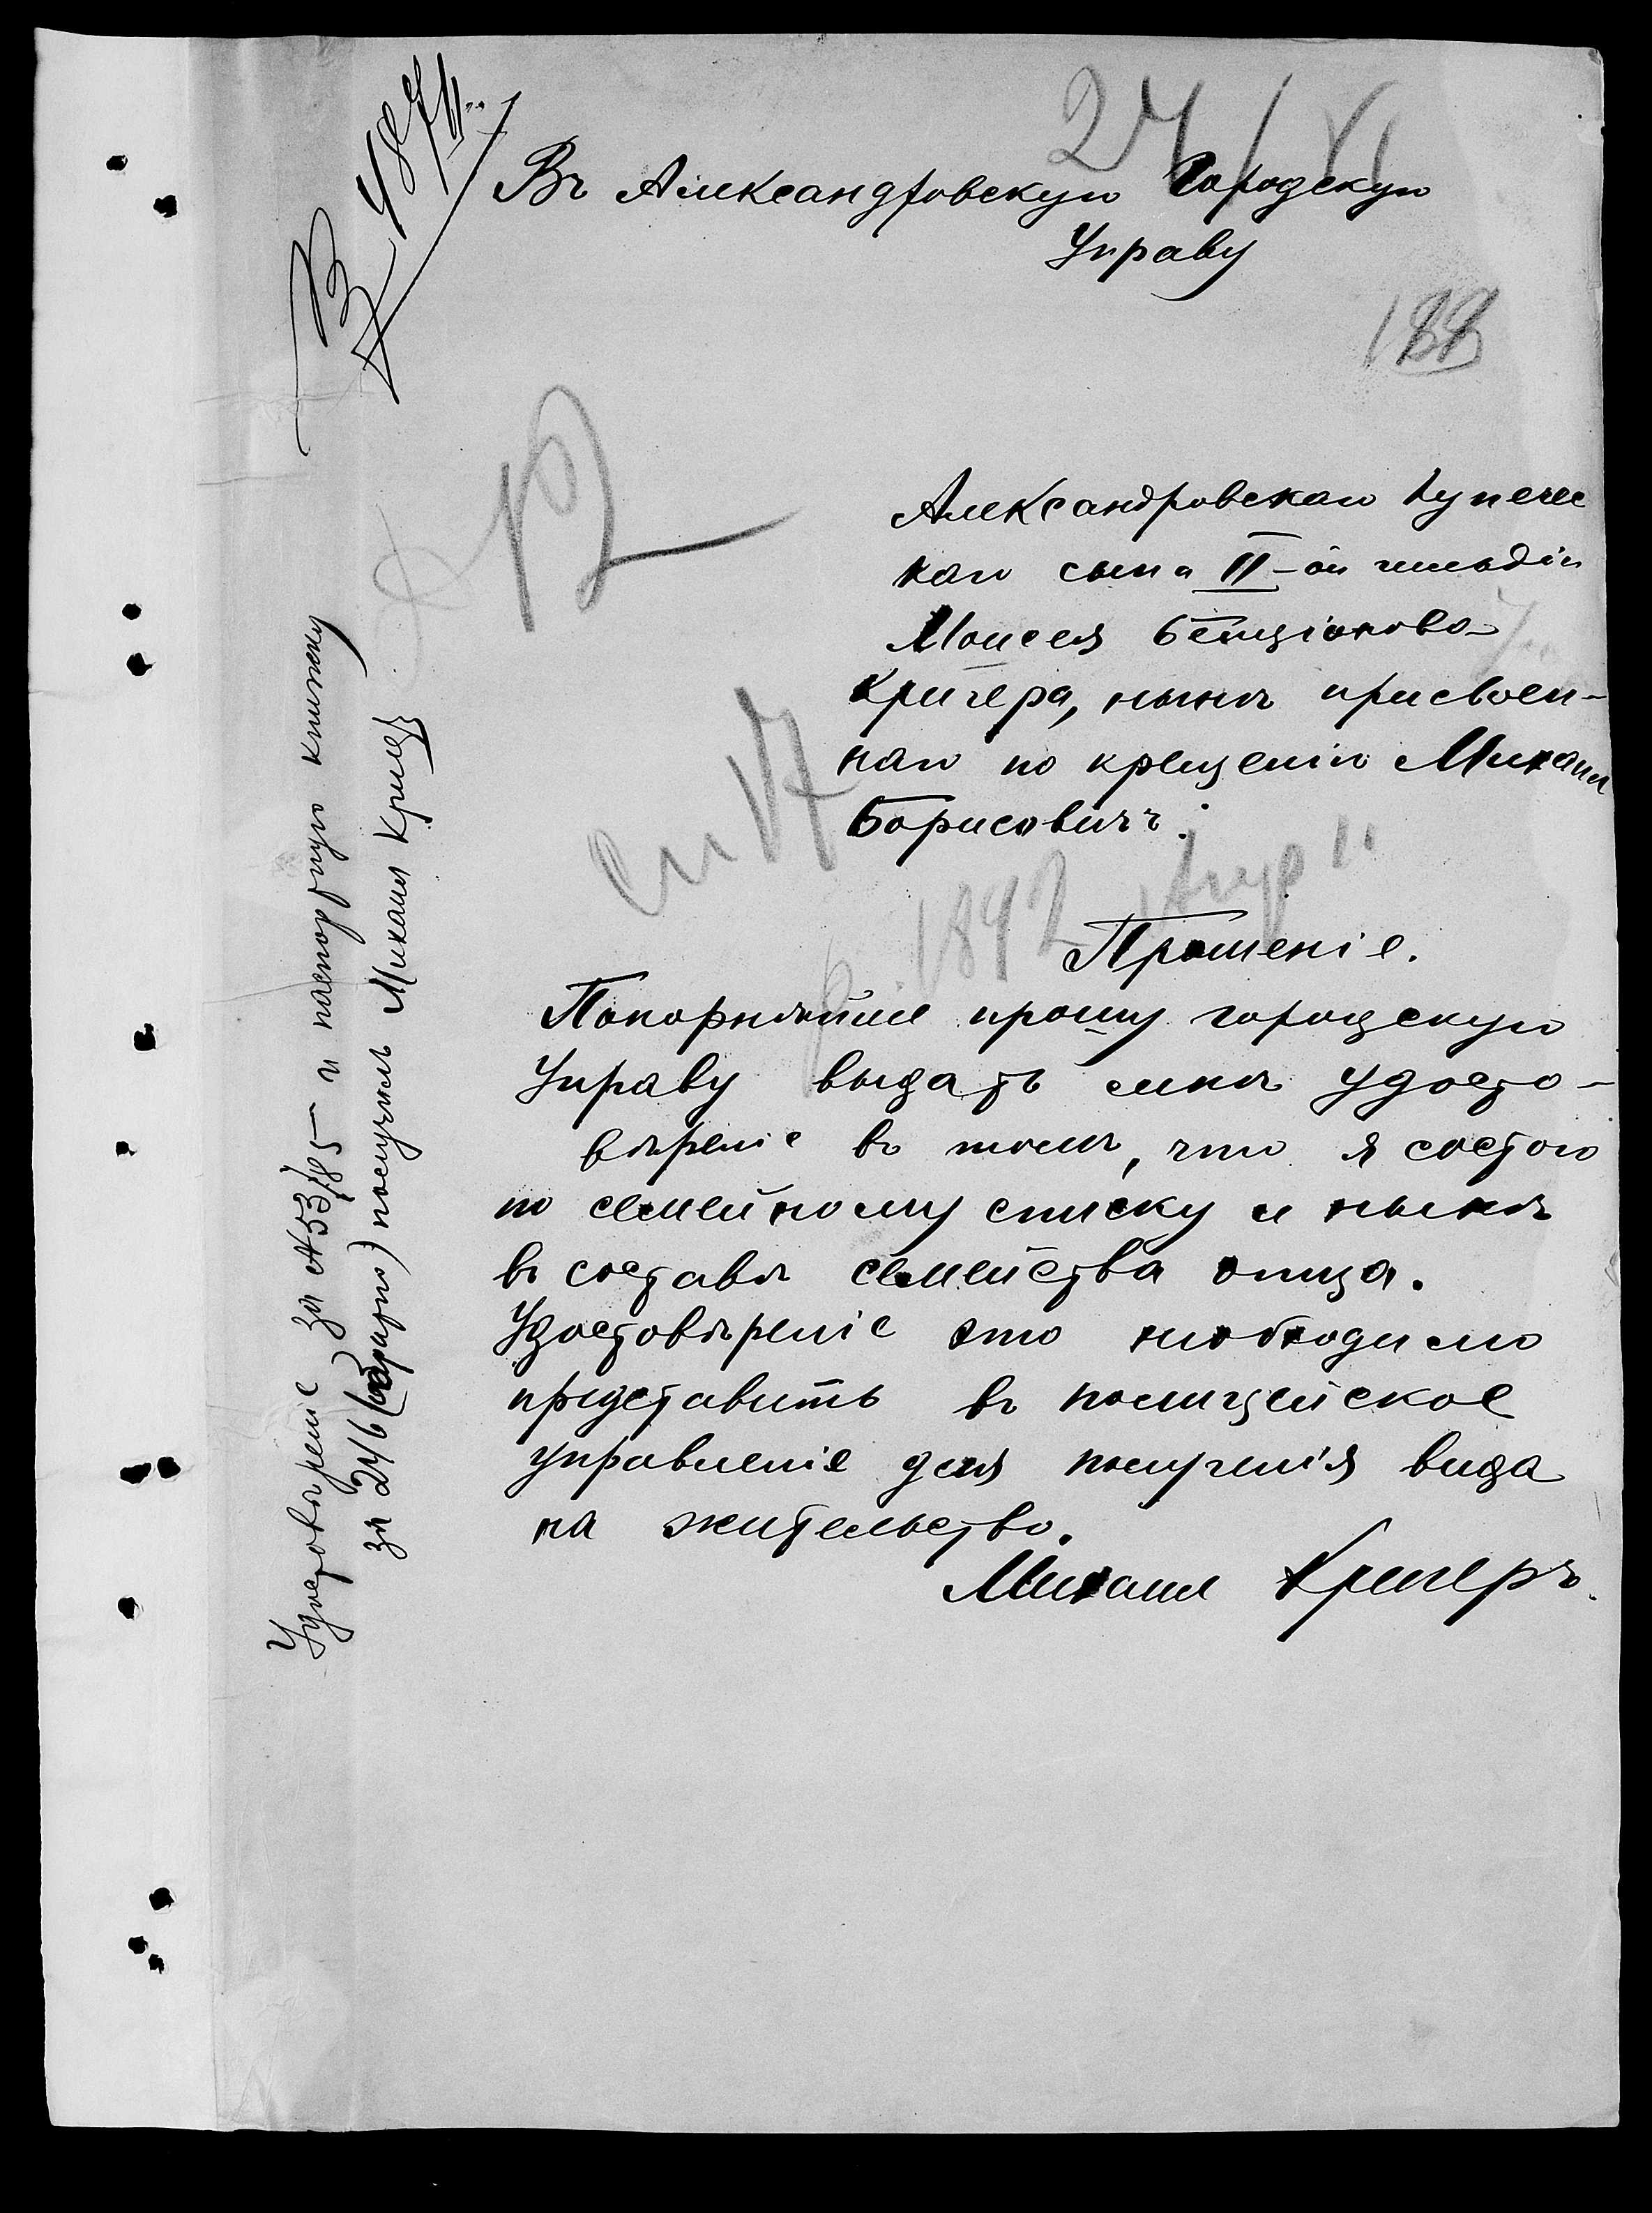 27/VI
Въ Александровскую Городскую
Управу
188
Александровскаго купечес
каго сына II-ой гильдіи
Моисея Бенціонова
Кригера, нынѣ присвоен-
наго по крещенію Михаил
Борисовичъ.
Прошеніе.
Покорнѣйше прошу городскую
Управу выдать мнѣ удосто-
вѣреніе въ томъ, что я состою
по семейному списку и нынѣ
въ составѣ семейства отца.
Удостовѣреніе это необходимо
представить въ полицейское
управленіе для полученія вида
на жительство.
Михаил Кригеръ.
Удостовѣреніе за №53/85 и паспортную книжку
за 246 (обратно) получилъ Михаил Кригер